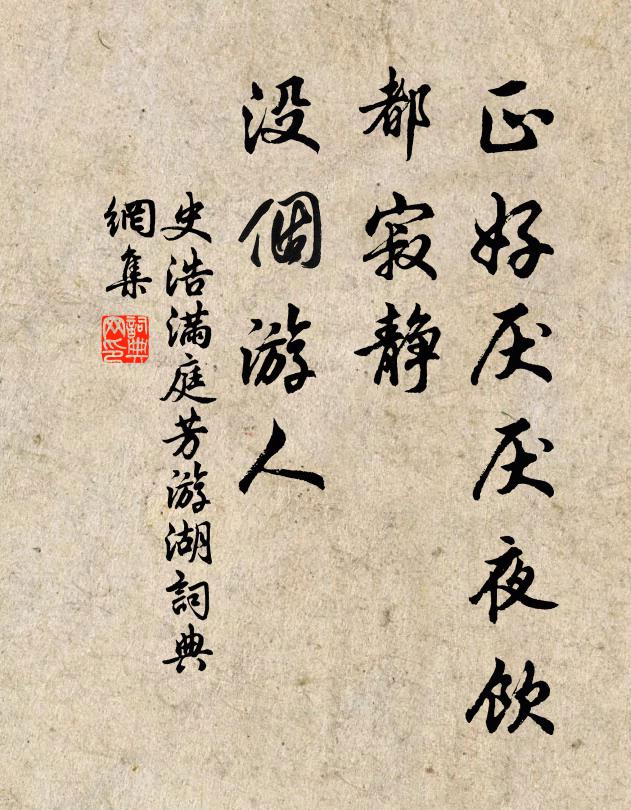 正好厌厌夜飲
都寂静
没個游人
史浩滿庭芳游湖詞典
網集
詞典网印